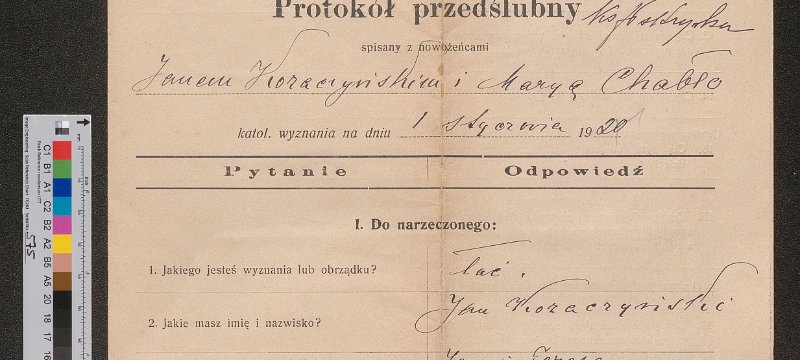 Protokół przedślubny
spisany z nowożeńcami
Janem Kozaczyńskim i Maryą Chabło
katol. wyznania na dniu 1 stycznia 1920
Pytanie Odpowiedź
I. Do narzeczonego:
1. Jakiego jesteś wyznania lub obrządku? łać.
2. Jakie masz imię i nazwisko? Jan Kozaczyński
C1 B1 A1 C2 B2 A2 B5 A5 20 18 17 16
575